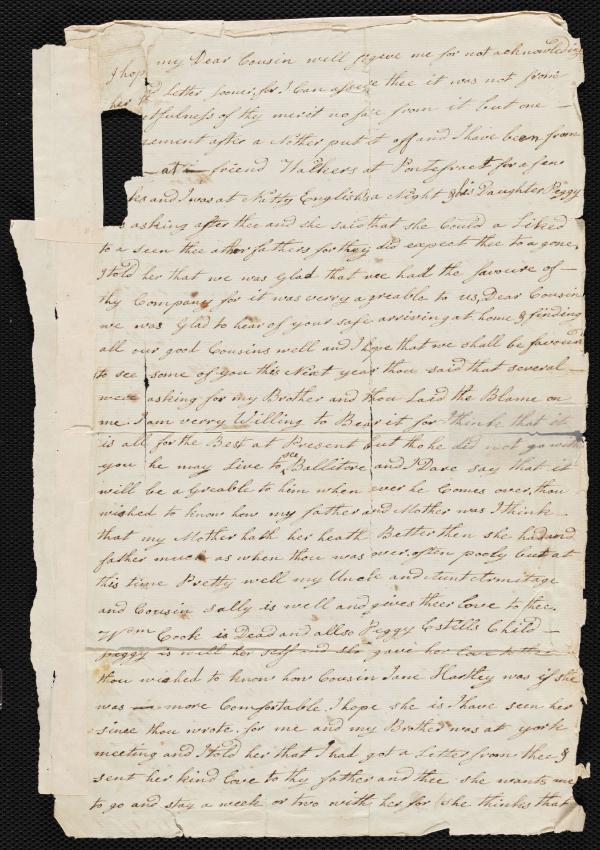 my Dear Cousin will forgive me for not acknowledging
I hope
her Letter sooner, for I Can assure thee it was not from
tfulness of thy merit no far from it but one
zement after a Nother put it off and I have been from
at friend Walkers at Pontefract for a few
ks and I was at Natty Englishs a Night & his Daughter Peggy
asking after thee and she said that she Could a Liked
to a seen thee at her fathers for they did expect thee to a gone,
I told her that we was Glad that we had the favoure of
thy Company for it was verry agreable to us, Dear Cousin
we was Glad to hear of your safe arriving at home & finding
all our good Cousins well and I hope that we shall be favourd
to see some of you this Next year thou said that several
were asking for my Brother and thou Laid the Blame on
me I am verry Willing to Bear it for I think that it
is all for the Best at Present but tho he did not go with
you he may Live to see Ballitore and I Dare say that it
will be agreable to him when ever he Comes over, thou
wished to know how my father and Mother was I think
that my Mother hath her heath Better then she had and
father much as when thou was over, often pooly but at
this time Pretty well my Uncle and Aunt Armitage
and Cousin Sally is well and gives their love to thee,
Cook is Dead and allso Peggy Estills Child
peggy is with her self and she gave her love to thee
thou wished to know how Cousin Jane Hartley was if she
was more Comfortable, I hope she is I have seen her
since thou wrote, for me and my Brother was at york
meeting and I told her that I had got a Letter from thee &
sent her kind love to thy father and thee she wants me
to go and stay a week or two with her for she thinks that